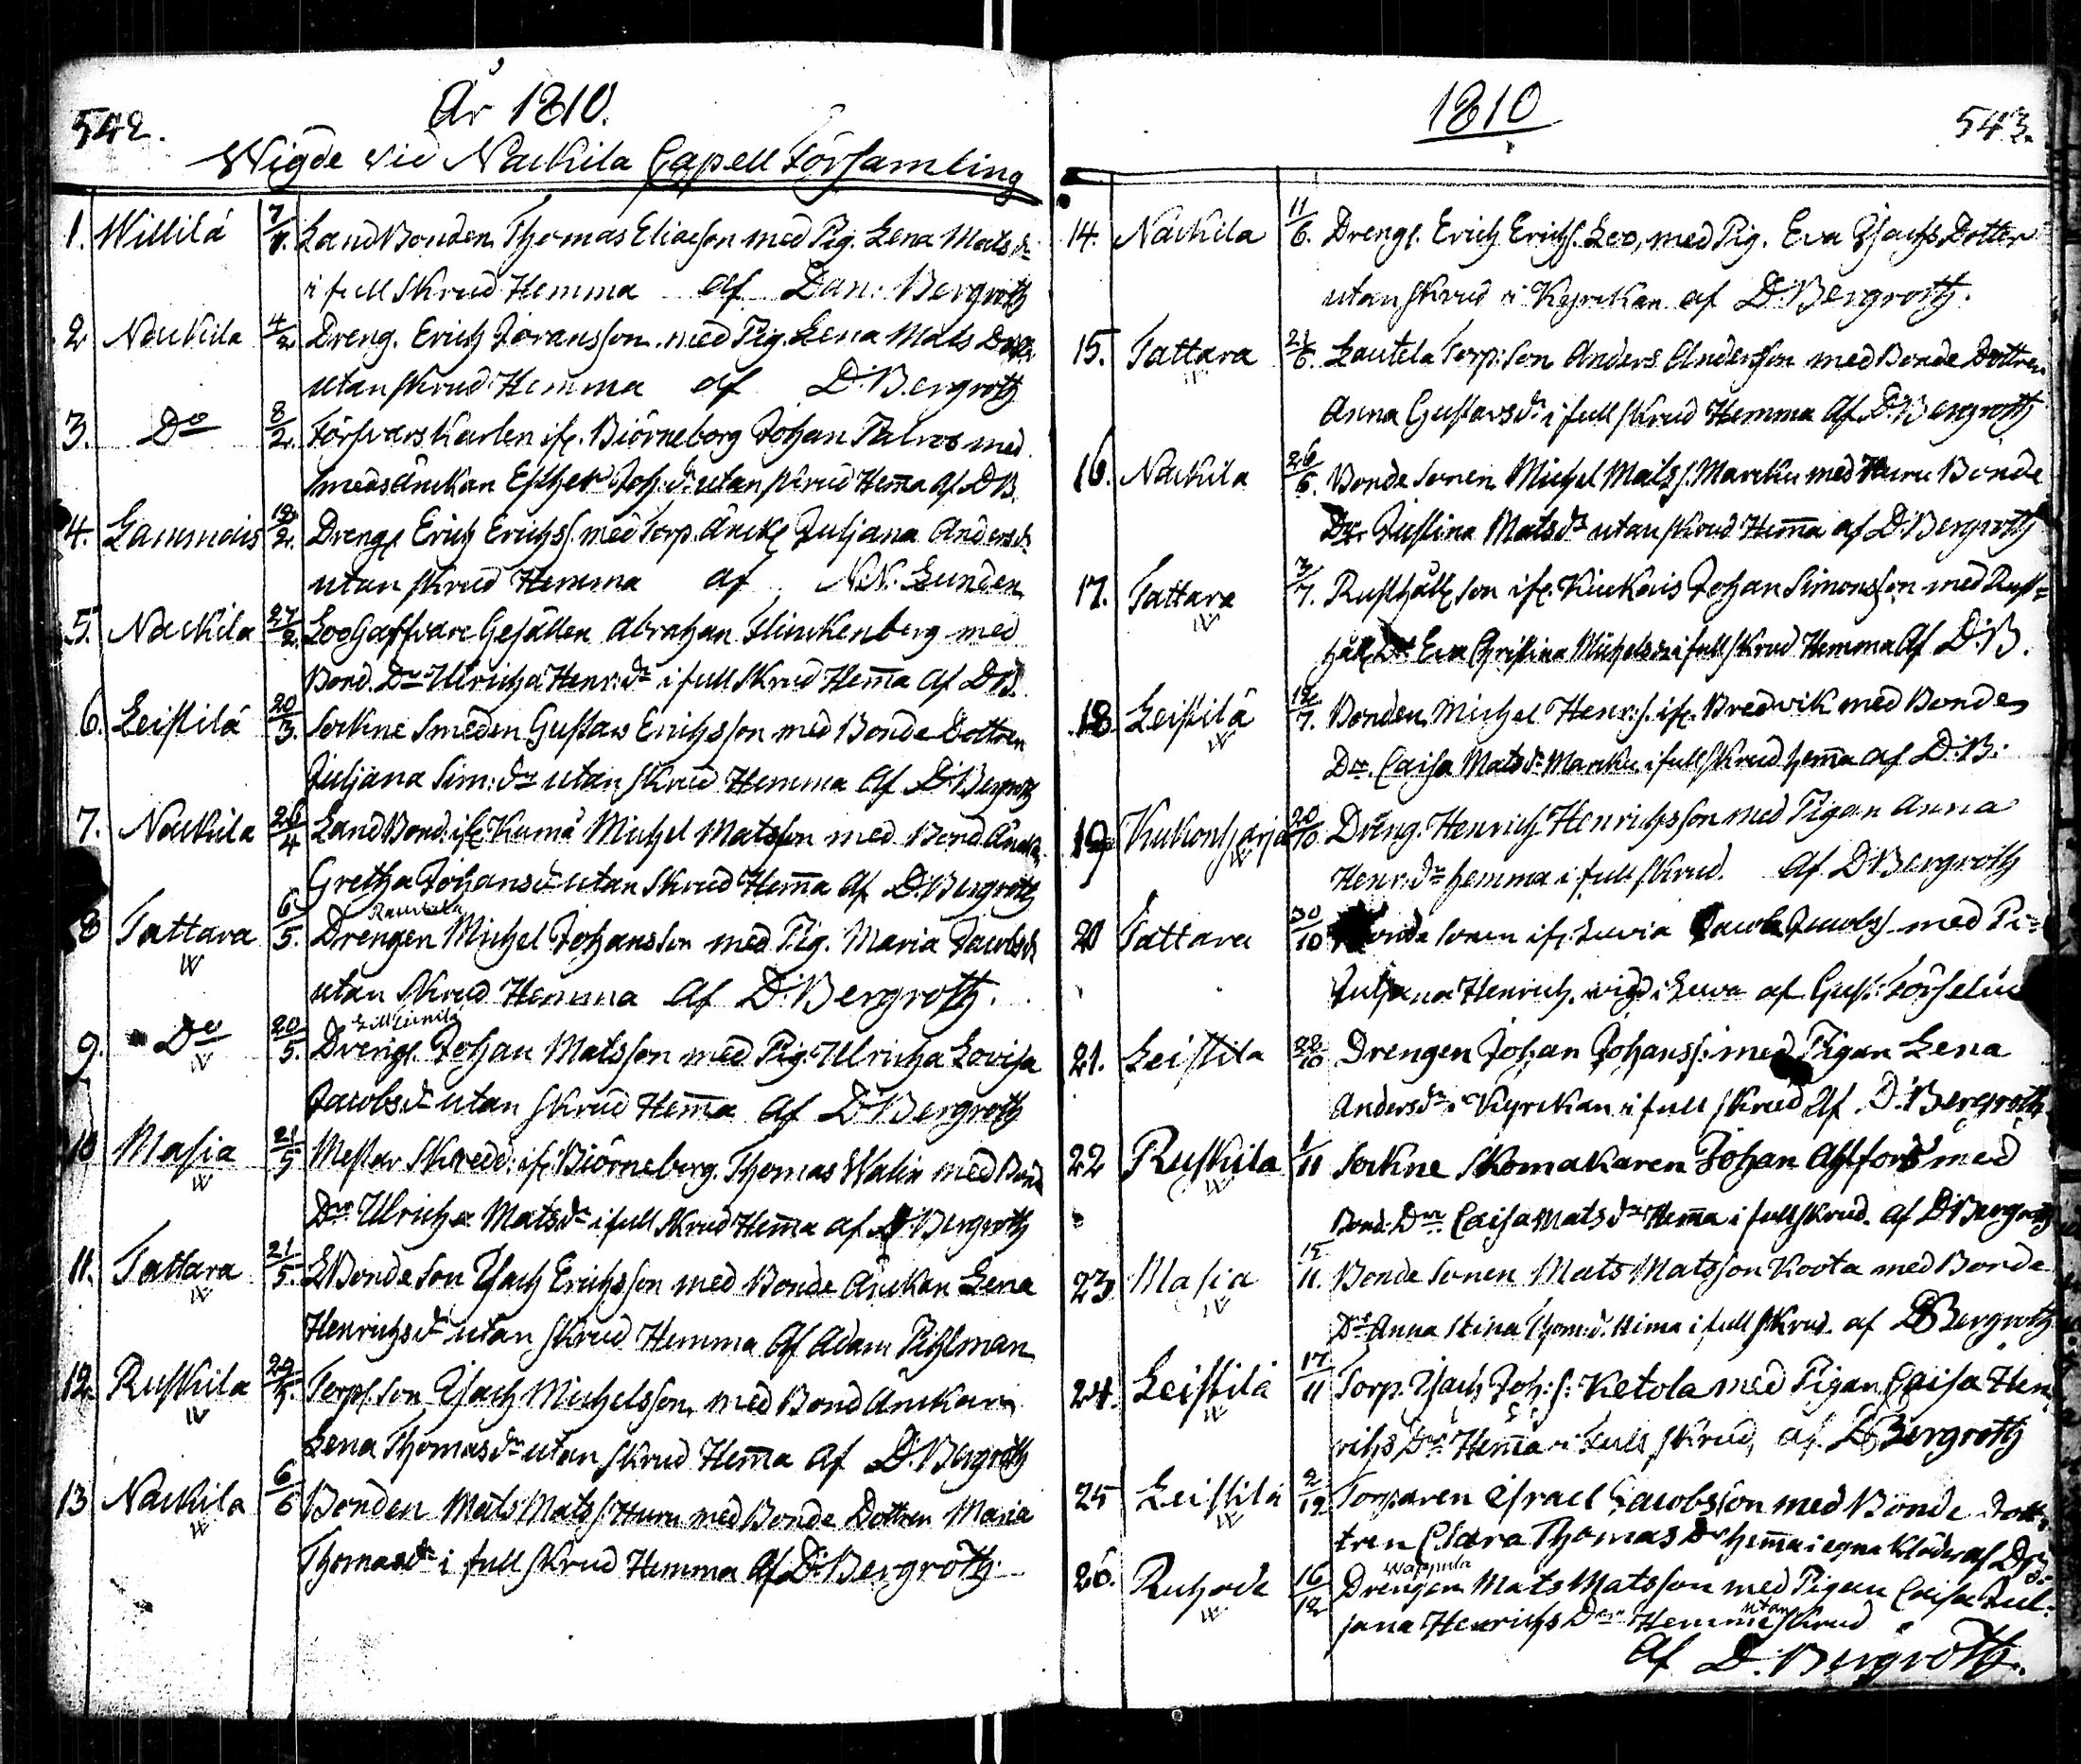 542.
År 1810.
Wigde vid Nackila Capell Församling
1. Willilä 7/1. LandBonden Thomas Eliaeson med Pig. Lena Mats dr
i full skrud Hemma af Dan: Bergroth
2 Nackila 4/2 Dreng. Erich Jöransson med Pig. Lena Mats Dotter
utan skrud Hemma af D: Bergroth
3. Do 8/2. Försvars Karlen ifr. Biörneborg Johan Palroos med
smeds Änckan Esther Joh: dr utan skrud Hema af DB.
4. Gammois 18/2. Drengs Erich Erichss. med Torp. Änck. Juljana Anders dr
utan skrud Hemma af N.N. Lunden
5. Nackila 27/2. Loogaffvare Gesällen Abraham Flinckenberg med
Bond. Dr Ulricha Henr: dr i full skrud Hema af DB.
6. Leistilä 20/3. Sockne Smeden Gustaw Erichsson med Bonde Dottren
Juljana Sim: dr utan skrud Hemma af D: Bergroth
7. Nackila 26/4 Land Bond. ifr. Kumå Michel Matsson med Bond Änckan
Gretha Johans dr utan skrud Hema af D: Bergroth
8 Tattara 6/5. Drengen Michel Johansson med Pig. Maria Jacobs dr
W
utan skrud Hemma af D: Bergroth.
9. Do 20/5. Drengs. Johan Matsson med Pig. Ulricha Lovisa
W
Jacobs dr utan skrud Hema af D: Bergroth
10 Masia 21/5 Mestar Skredd: ifr. Biörneborg. Thomas Walin med Bond
W
Dr Ulricha Mats dr i full skrud Hema af D: Bergroth
11. Tattara 21/5. LBonde Son Isach Erichsson med Bonde Änckan Lena
W
Henrichs dr utan skrud Hemma af Adam Pihlman
12. Ruskila 29/5. Torps. Son Isach Michelsson med Bond Änckan
W
Lena Thomas dr utan skrud Hema af D: Bergroth
13 Nackila 6/6 Bonden Mats Matss. Huru med Bonde Dottren Maria
W
Thomas dr i full skrud Hemma af D: Bergroth.
1810
543.
14. Nackila 11/6. Drengs. Erich Erichs. Leo, med Pig. Eva Isachs Dotter
utan skrud i Kyrckan af D: Bergroth.
15. Tattara 21/6. Lautela Torp: Son Anders Andersson med Bonde Dottren
Anna Gustavs dr i full skrud Hemma af D: Bergroth
16. Nackila 26/6. Bonde Sonen Michel Matss. Marcku med Huru Bonde
Dr. Justina Mats dr utan skrud Hema af D: Bergroth
17. Tattara 3/7. Rusthålls Son ifr. Kuckois Johan Simonsson med Rust=
W
håll. Dr Eva Christina Michels dr i full skrud Hemma af D: B.
18 Leistilä 12/7. Bonden Michel Henr: s. ifr. Bredvik med Bonde
W
Dr. Caisa Mats dr Marcku i full skrud hema af D: B:
19 Kukonharja 20/10 Dreng. Henrich Henrichsson med Pigan Anna
W
Henr: dr hemma i full skrud. af D: Bergroth
20 Tattara 30/10 Bonde Sonen ifr. Luvia Jacob Jacobss. med Pi=
Juljana Henrich. vigd i Luvia af Gust:
21. Leistila 22/10 Drengen Johan Johanss: med Pigan Lena
Anders dr i Kyrckan i full skrud af D: Bergroth
22 Ruskila 1/11 Sockne Skomakaren Johan Ahlfors med
W
Bond: Dr Caisa Mats dr Hema i full skrud. af D: Bergroth
23 Masia 15/11. Bonde Sonen Mats Matsson Koota med Bonde
W
Dr Anna Stina Thom: d. Nima i full skrud. af D: Bergroth
24. Leistilä 17/11 Torp. Isach Joh: s: Ketola med Pigan Caisa Hen
W
richs Dr Hema i full skrud, af D: Bergroth
25 Leistilä 2/12 Torparen Israel Jacobsson med Bonde Dott=
W
tren Clara Thomas Dr hema i egna Kläder af DB.
26. Ruhade 16/12 Drengen Mats Matsson med Pigan Caisa Jul=
W
jana Henrichs Dr Hemma utan skrud
af D: Bergroth.